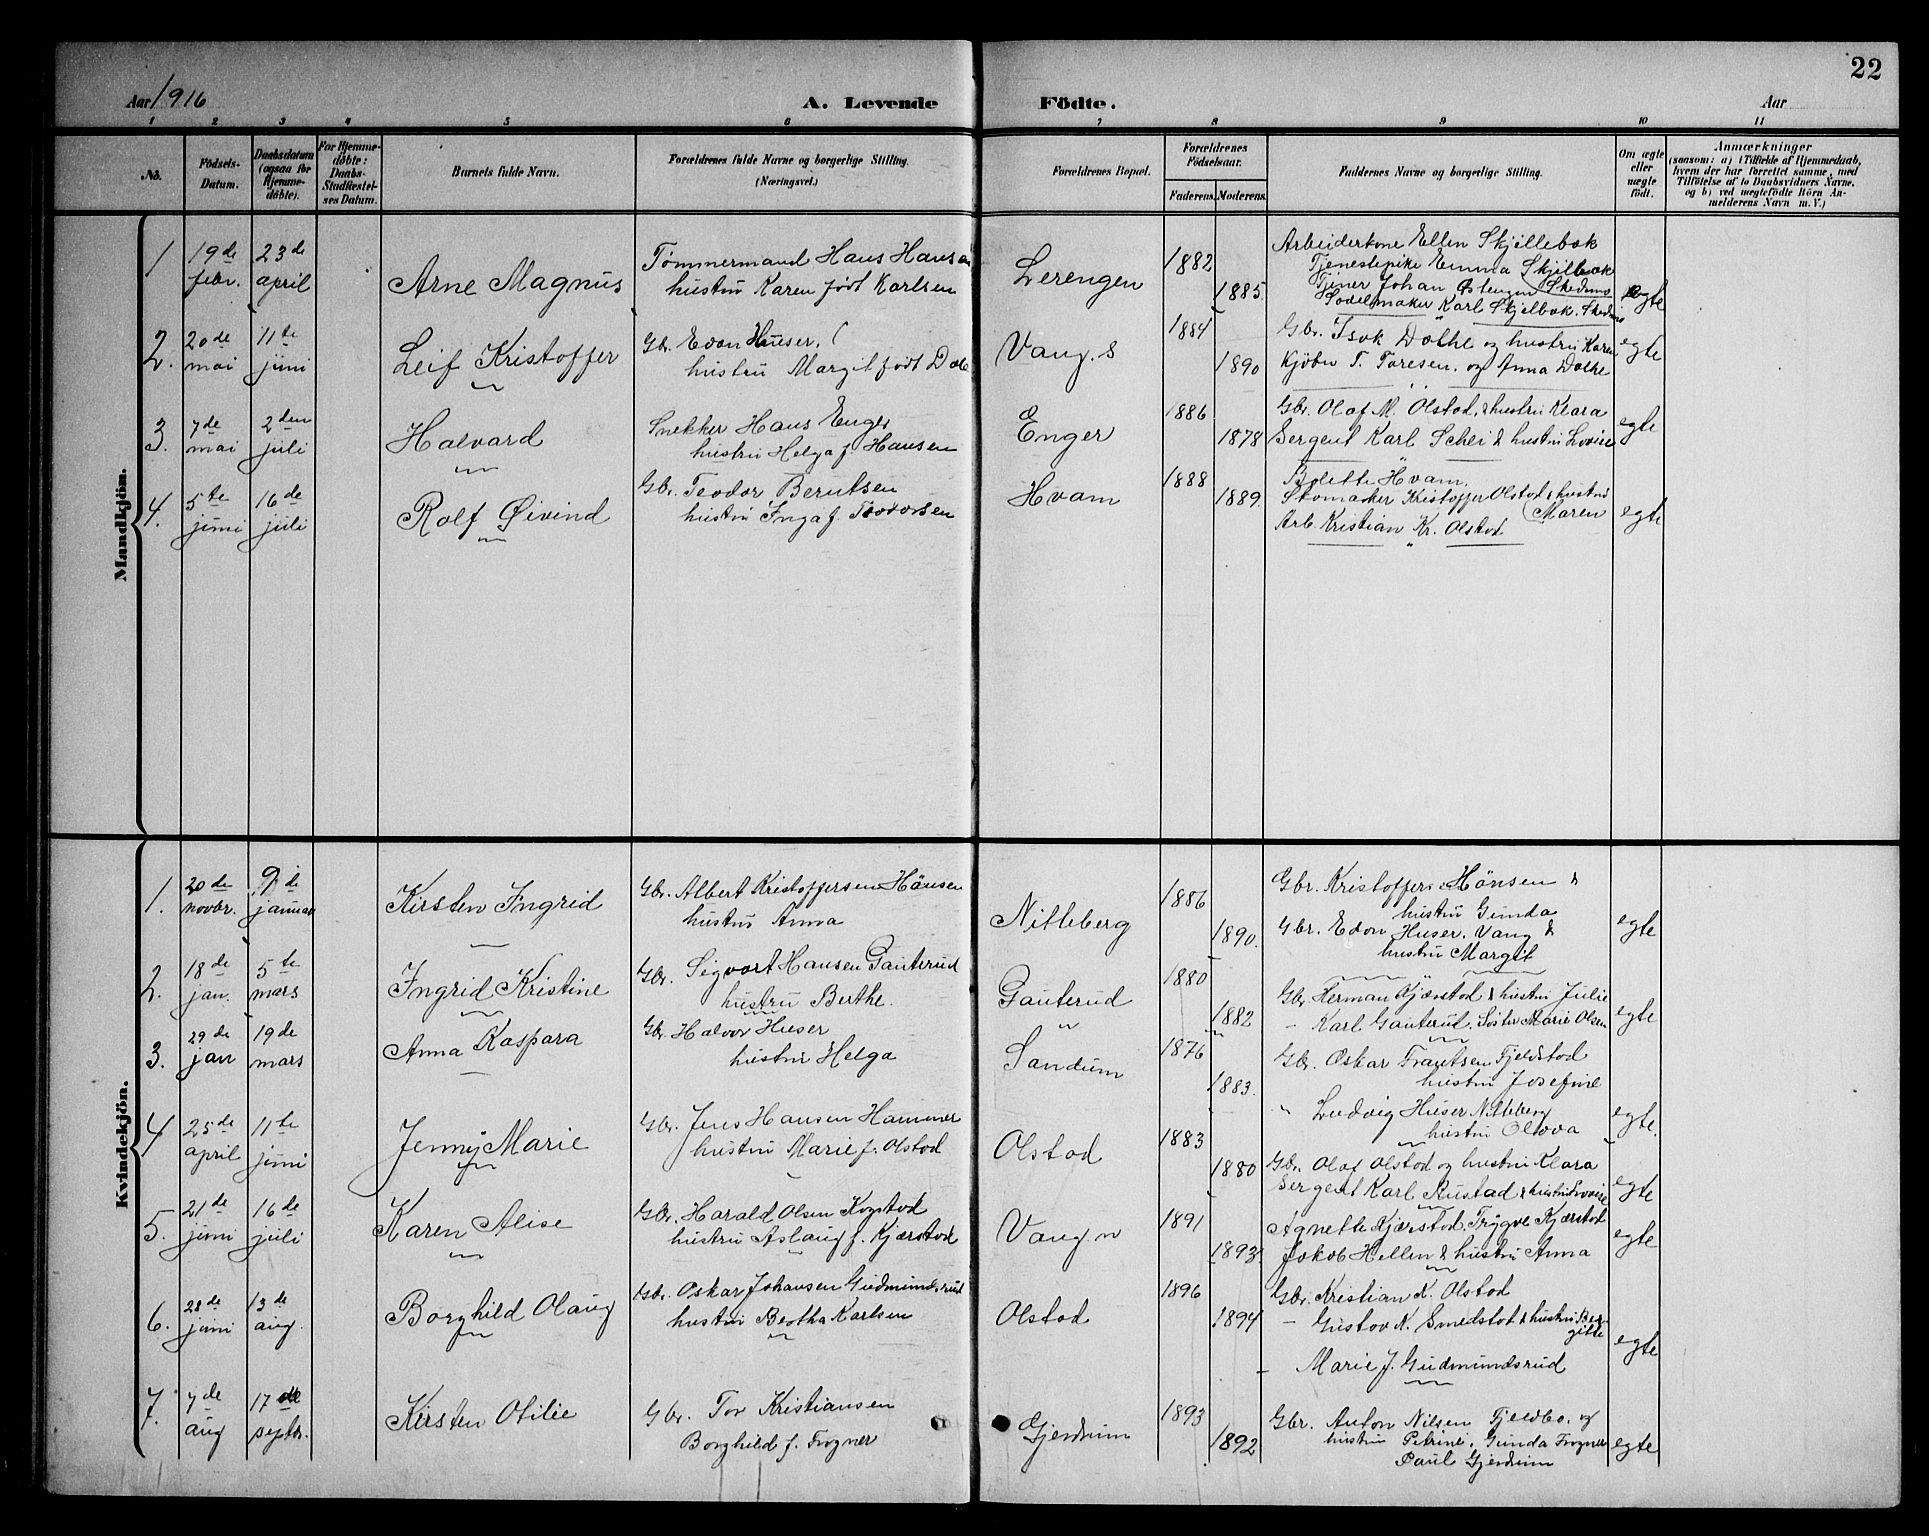 22
Aar 1916
A. Levende Födte.
Aar
1 2 3 4 5 6 7 8 9 10 11
No.
Födsels-
Datum.
Daabsdatum
(ogsaa for
Hjemme-
döbte).
For Hjemme-
döbte:
Daabs-
Stadfæstel-
ses Datum.
Barnets fulde Navn.
Forældrenes fulde Navne og borgerlige Stilling.
(Næringsvei.)
Forældrenes Bopæl.
Forældrenes
Födselsaar.
Faderens. Moderens.
Faddernes Navne og borgerlige Stilling.
Om ægte
eller
uægte
födt.
Anmærkninger
(saasom: a) i Tilfælde af Hjemmedaab,
hvem der har forrettet samme, med
Tilföielse af to Daabsvidners Navne.
og b) ved uægtefödte Börn An-
melderens Navn m. V.)
Mandkjön.
1 19de febr. 23de april
Arne Magnus
Tømmermand Hans Hansen
hustru Karen født Karlsen
Lerengen
1882
1885
Arbeiderkone Ellen Skjillebæk
Tjenestepike Emma Skjilbæk
Tjener Johan Østengen Skedsmo
Sadelmaker Karl Skjelbæk. Skedsmo
egte
2. 20de mai 11te juni
Leif Kristoffer
Gb. Edon Huser.
hustru Margit født Døle
Vang. s
1884
1890
Gbr. Isak Døhle og hustru Karen
Kjøbm T. Toresen. og Anna Døhle
egte
3. 7de mai 2den juli
Halvard
Snekker Hans Enger
hustru Helga f. Hansen
Enger
1886
1878
Gbr. Olaf M. Ølstad, & hustru Klara
Sergent Karl Schei & hustru Lovise
egte
4. 5te juni 16de juli
Rolf Øivind
Gbr. Teodor Berntsen
hustru Inga f. Teodorsen
Hvam
1888
1889.
Bolette Hvam.
Skomaker Kristoffer Olstad & hustru
(Maren
Arb. Kristian Kr. Olstad
egte
Kvindekjön.
1. 20de novbr. 9de januar
Kirsten Ingrid
Gbr. Albert Kristoffersen Hønsen
hustru Anna
Nitteberg
1886
1890.
Gbr. Kristoffer Hønsen &
hustru Gunda
Gbr. Edon Huser. Vang &
hustru Margit
egte
2. 18de jan. 5te mars
Ingrid Kristine
Gbr. Sigvart Hansen Gauterud
hustru Berthe.
Gauterud
1880
1882
Gbr. Herman Kjærstad & hustru Julie
- Karl Gauterud. Søster Marie Olsen
egte
3. 29de jan 19de mars
Anna Kaspara
Gbr. Halvor Huser
hustru Helga
Sandum
1876
1883.
Gbr. Oskar Frantsen Fjeldstad
hustru Josefine
" Ludvig Huser Nitteberg
hustru Olava
egte.
4 25de april 11te juni
Jenny Marie
Gbr. Jens Hansen Hammer
hustru Marie f. Olstad
Olstad
1883
1880
Gbr. Olaf Olstad og hustru Klara
Sergent Karl Rustad & hustru Lovise
egte
5. 21de juni 16de juli
Karen Alise
Gbr. Harald Olsen Kogstad
hustru Aslaug f. Kjærstad
Vang. n
1891
1893
Agnette Kjærstad. Trygve Kjærstad
Jakob Hellen & hustru Anna
egte
6. 28de juni 13de aug.
Borghild Olaug
Gbr. Oskar Johansen Gudmundsrud
hustru Bertha Karlsen
Olstad
1896
1894
Gbr. Kristian K. Olstad
- Gustav K. Smedstad & hustru Ber-
gitte
- Marie J. Gudmundsrud
egte
7. 7de aug 17de septbr.
Kirsten Otilie
Gbr. Tor Kristiansen
Borghild f. Frogner
Gjerdrum
1893
1892
Gbr. Anton Nilsen Fjeldbo. og
hustru Petrine. Gunda Frogner
Paul Gjerdrum
egte